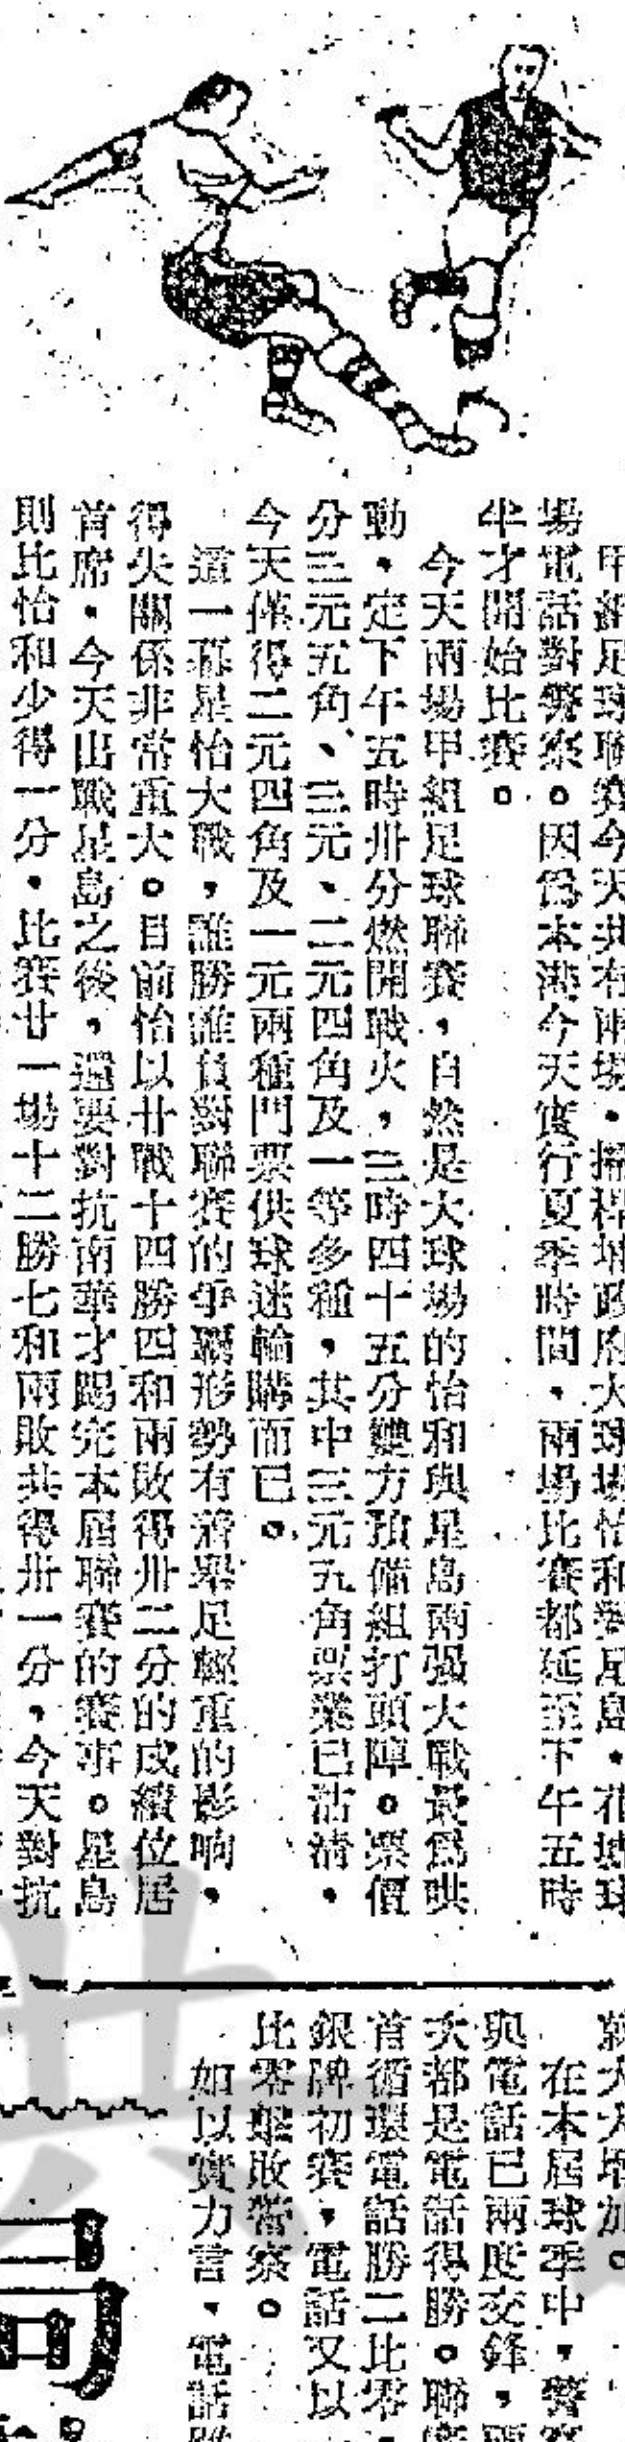 甲組足球聯賽今天共有兩場,掃桿埔政府大球場怡和對星島,花墟球
場電話對警察。因爲本港今天實行夏季時間,兩場比賽都延至下午五時
半才開始比賽。
今天兩場甲組足球聯賽,自然是大球場的怡和與星島兩强大戰最爲哄
動,定下午五時卅分燃開戰火,三時四十五分雙方預備組打頭陣。票價
分三元五角、三元、二元四角及一等多種,其中三元五角票業已沽清,
今天僅得二元四角及一元兩種門票供球迷輪購而已。
這一幕星怡大戰,誰勝誰負對聯賽的爭覇形勢有着舉足輕重的影响,
得失關係非常重大。目前怡以廿戰十四勝四和兩敗得卅二分的成績位居
首席,今天出戰星島之後,還要對抗南華才踢完本屆聯賽的賽事。星島
則比怡和少得一分,比賽廿一場十二勝七和兩敗共得卅一分,今天對抗
大大增加。
在本屆球季中,警察
與電話已兩度交鋒,兩
次都是電話得勝。聯賽
首循環電話勝二比零,
銀牌初賽,電話又以一
比零挫敗警察。
如以實力言,電話
局